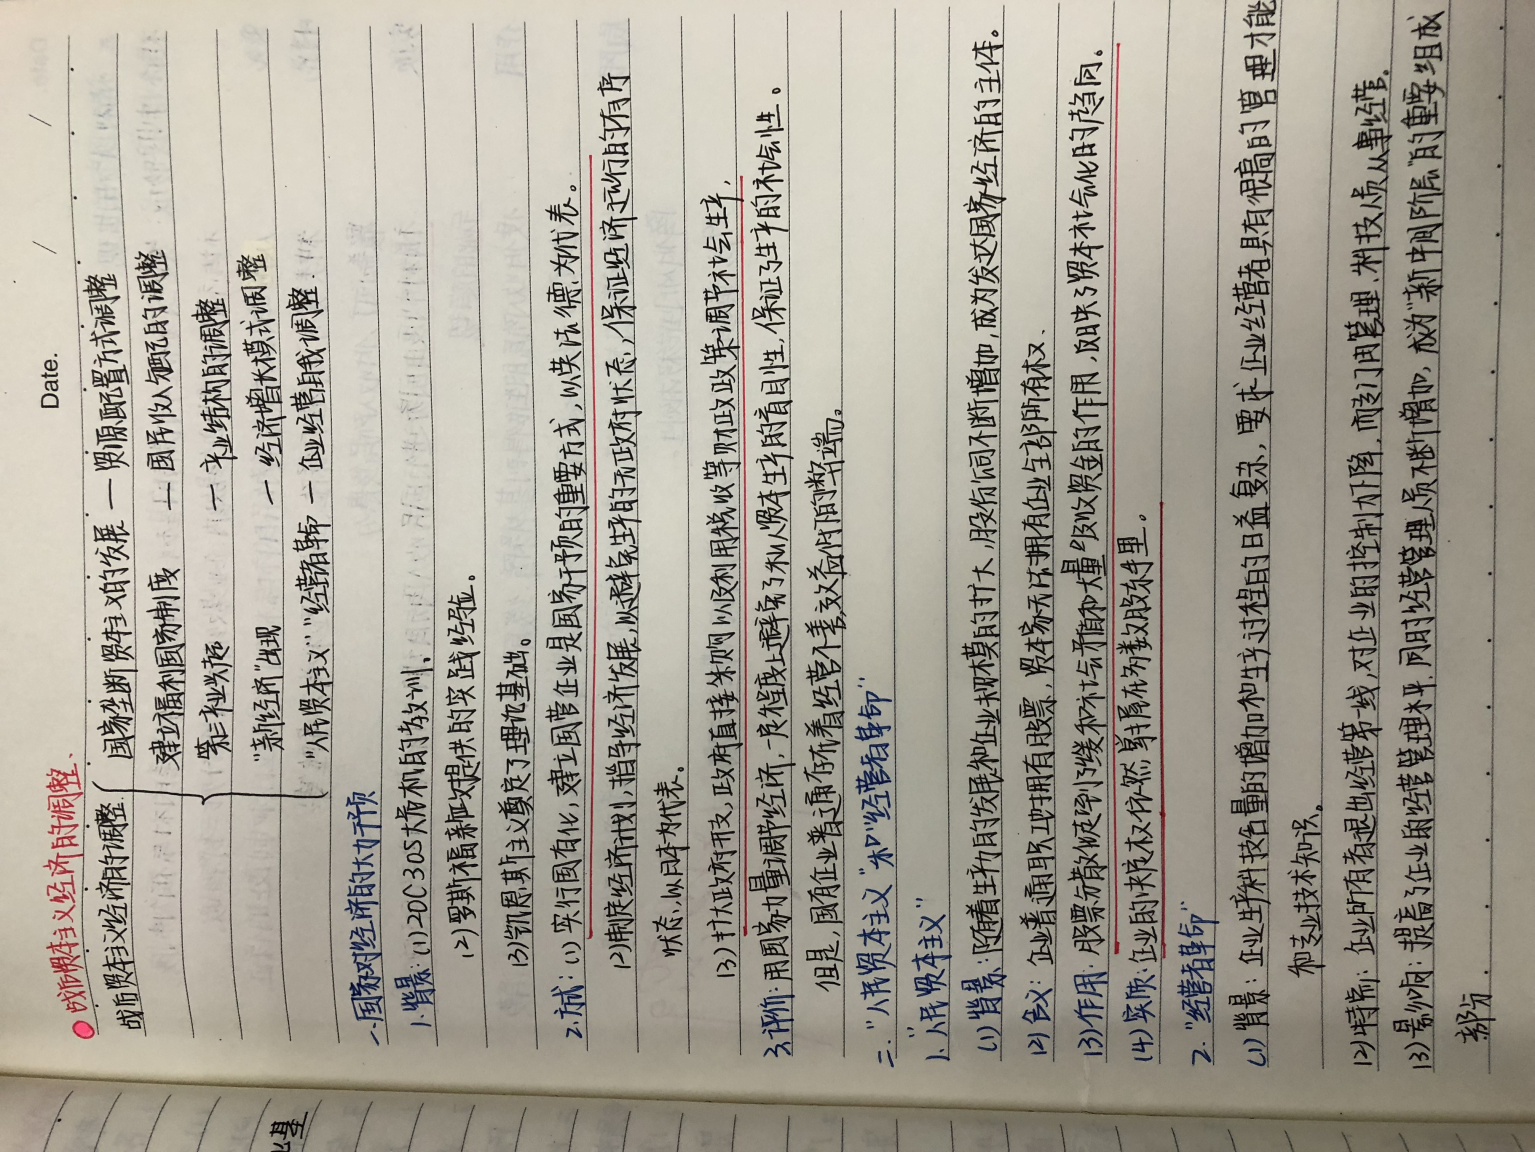 Date. / /
战后资本主义经济的调整
战后资本主义经济的调整
国家垄断资本主义的发展 — 资源配置方式调整
建立福利国家制度 — 国民收入分配的调整
第三产业兴起 — 产业结构的调整
“新经济”出现 — 经济增长模式调整
“人民资本主义”“经营者革命” — 企业经营自我调整
一.国家对经济的大力干预
1.背景:(1)20C30S大危机的教训.
(2)罗斯福新政提供的实践经验。
(3)凯恩斯主义奠定了理论基础。
2.方式:(1)实行国有化,建立国营企业是国家干预的重要方式,以英法德为代表。
(2)制定经济计划,指导经济发展,以避免生产的无政府状态,保证经济运行的有序
状态,以日本为代表。
(3)扩大政府开支,政府直接采购以及利用税收等财政政策调节社会生产,
3.评价:用国家力量调节经济,一定程度上避免了私人资本生产的盲目性,保证了生产的社会性。
但是,国有企业普遍存在着经营不善,效益低下的弊端。
二.“人民资本主义”和“经营者革命”
1.“人民资本主义”
(1)背景:随着生产力的发展和企业规模的扩大,股份公司不断增加,成为发达国家经济的主体。
(2)含义:企业普通职工拥有股票,资本家无法拥有企业全部所有权.
(3)作用:股票分散化起到了缓和社会矛盾和大量吸收资金的作用,反映了资本社会化的趋向。
(4)实质:企业的决策权依然掌握在少数股东手里。
2.“经营者革命”
(1)背景:企业生产科技含量的增加和生产过程的日益复杂,要求企业经营者具有很高的管理才能
和专业技术知识。
(2)特点:企业所有者退出经营第一线,对企业的控制力下降,而专门由管理、科技人员从事经营。
(3)影响:提高了企业的经营管理水平,同时经营管理人员不断增加,成为“新中间阶层”的重要组成
部分